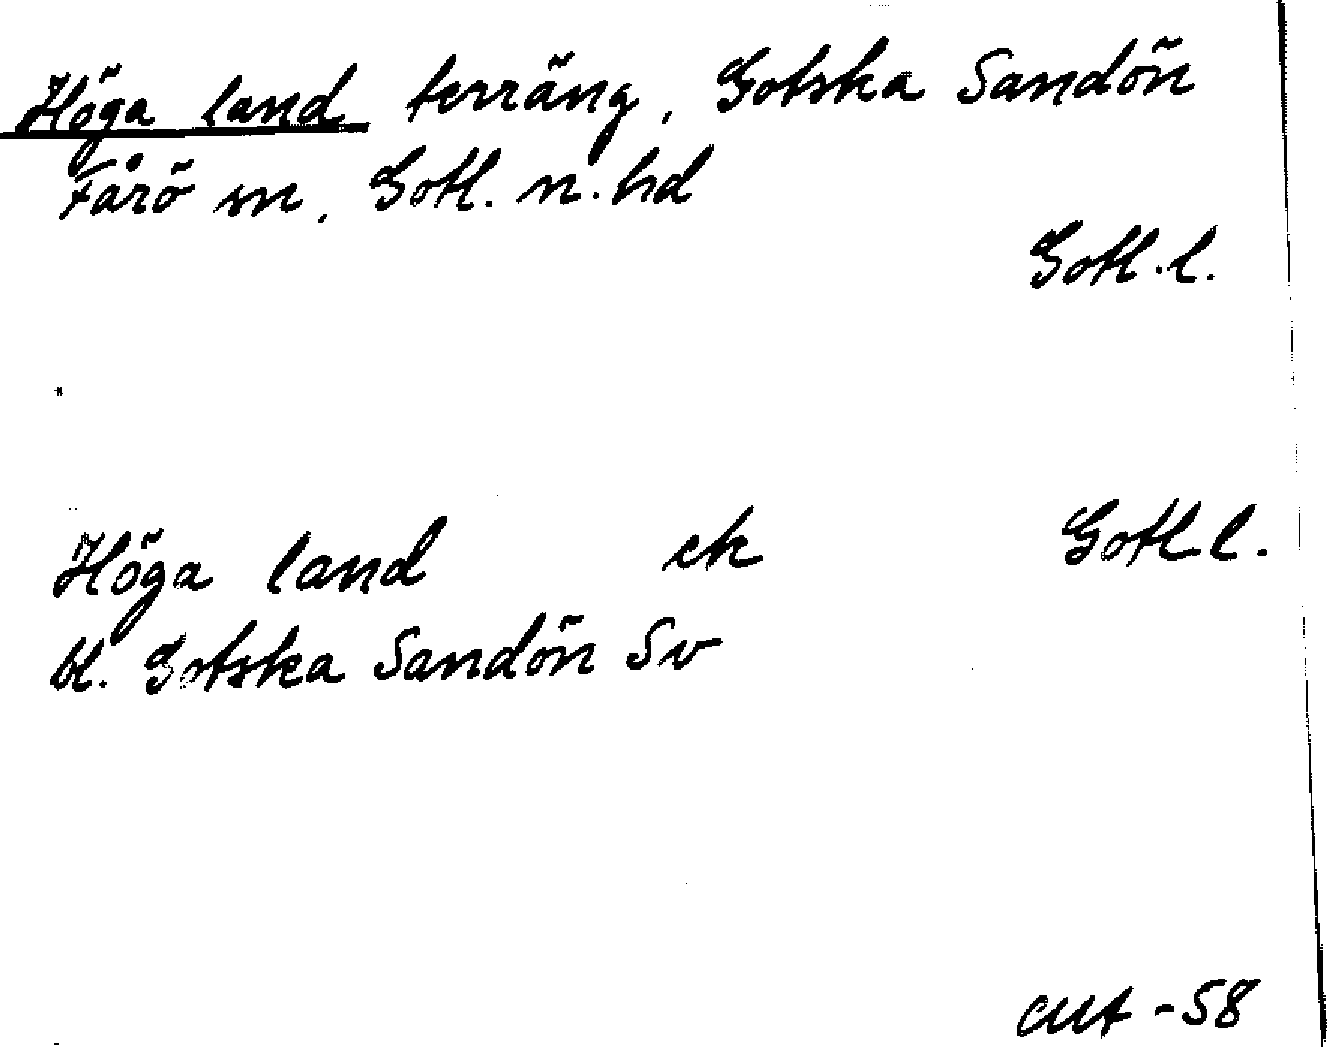 Höga land terräng, Gotska Sandön
Fårö sn, Gotl. n. hd
Gotl. l.
Höga land ek Gotl. l.
bl. Gotska Sandön Sv
-58